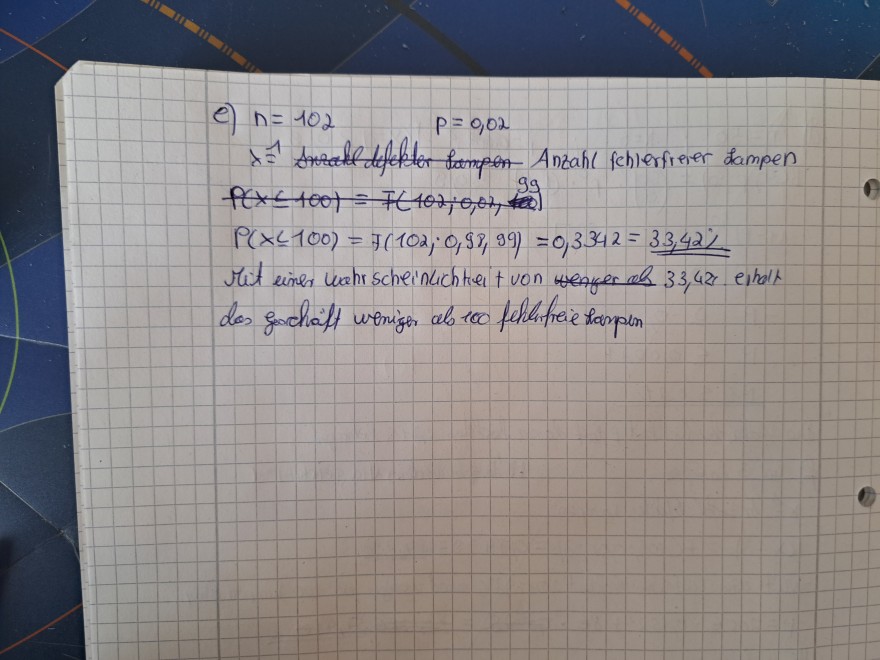 e) n = 102 p = 0,02
x ≙ Anzahl defekter Lampen Anzahl fehlerfreier Lampen
P(x ≤ 100) = F(102; 0,02, 99)
P(x < 100) = F(102; 0,98, 99) = 0,3342 = 33,42%
Mit einer wahrscheinlichkeit von weniger als 33,42% erhält
das geschäft weniger als 100 fehlerfreie Lampen